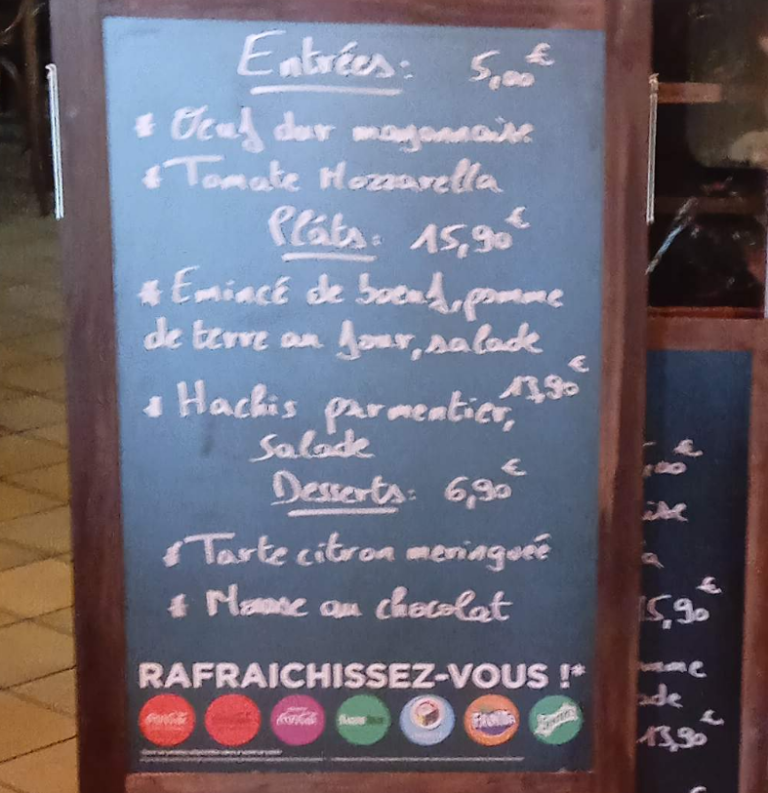 Entrées: 5,00€
* Oeuf dur mayonnaise
* Tomate Mozzarella
Plâts: 15,90€
* Emincé de boeuf, pomme
de terre au four, salade
* Hachis parmentier, 13,90€
Salade
Desserts: 6,90€
* Tarte citron meringuée
* Mousse au chocolat
RAFRAICHISSEZ-VOUS !*
,00€
ise
a
15,90€
mme
ade
13,90€
€